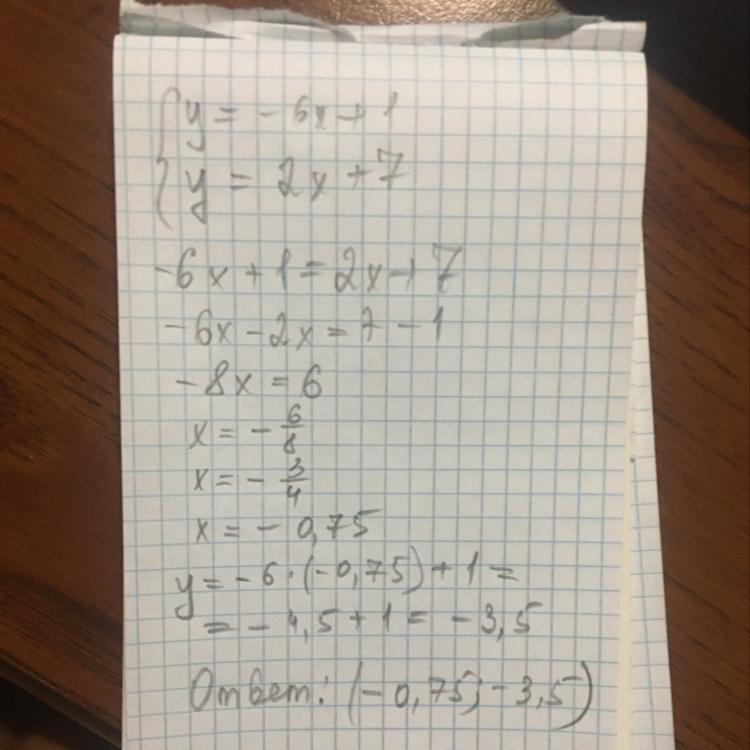 { y = -6x+1
y = 2x+7
-6x+1=2x+7
-6x-2x=7-1
-8x=6
x=-6/8
x=-3/4
x=-0,75
y=-6·(-0,75)+1=
=-4,5+1=-3,5
Ответ: (-0,75; -3,5)